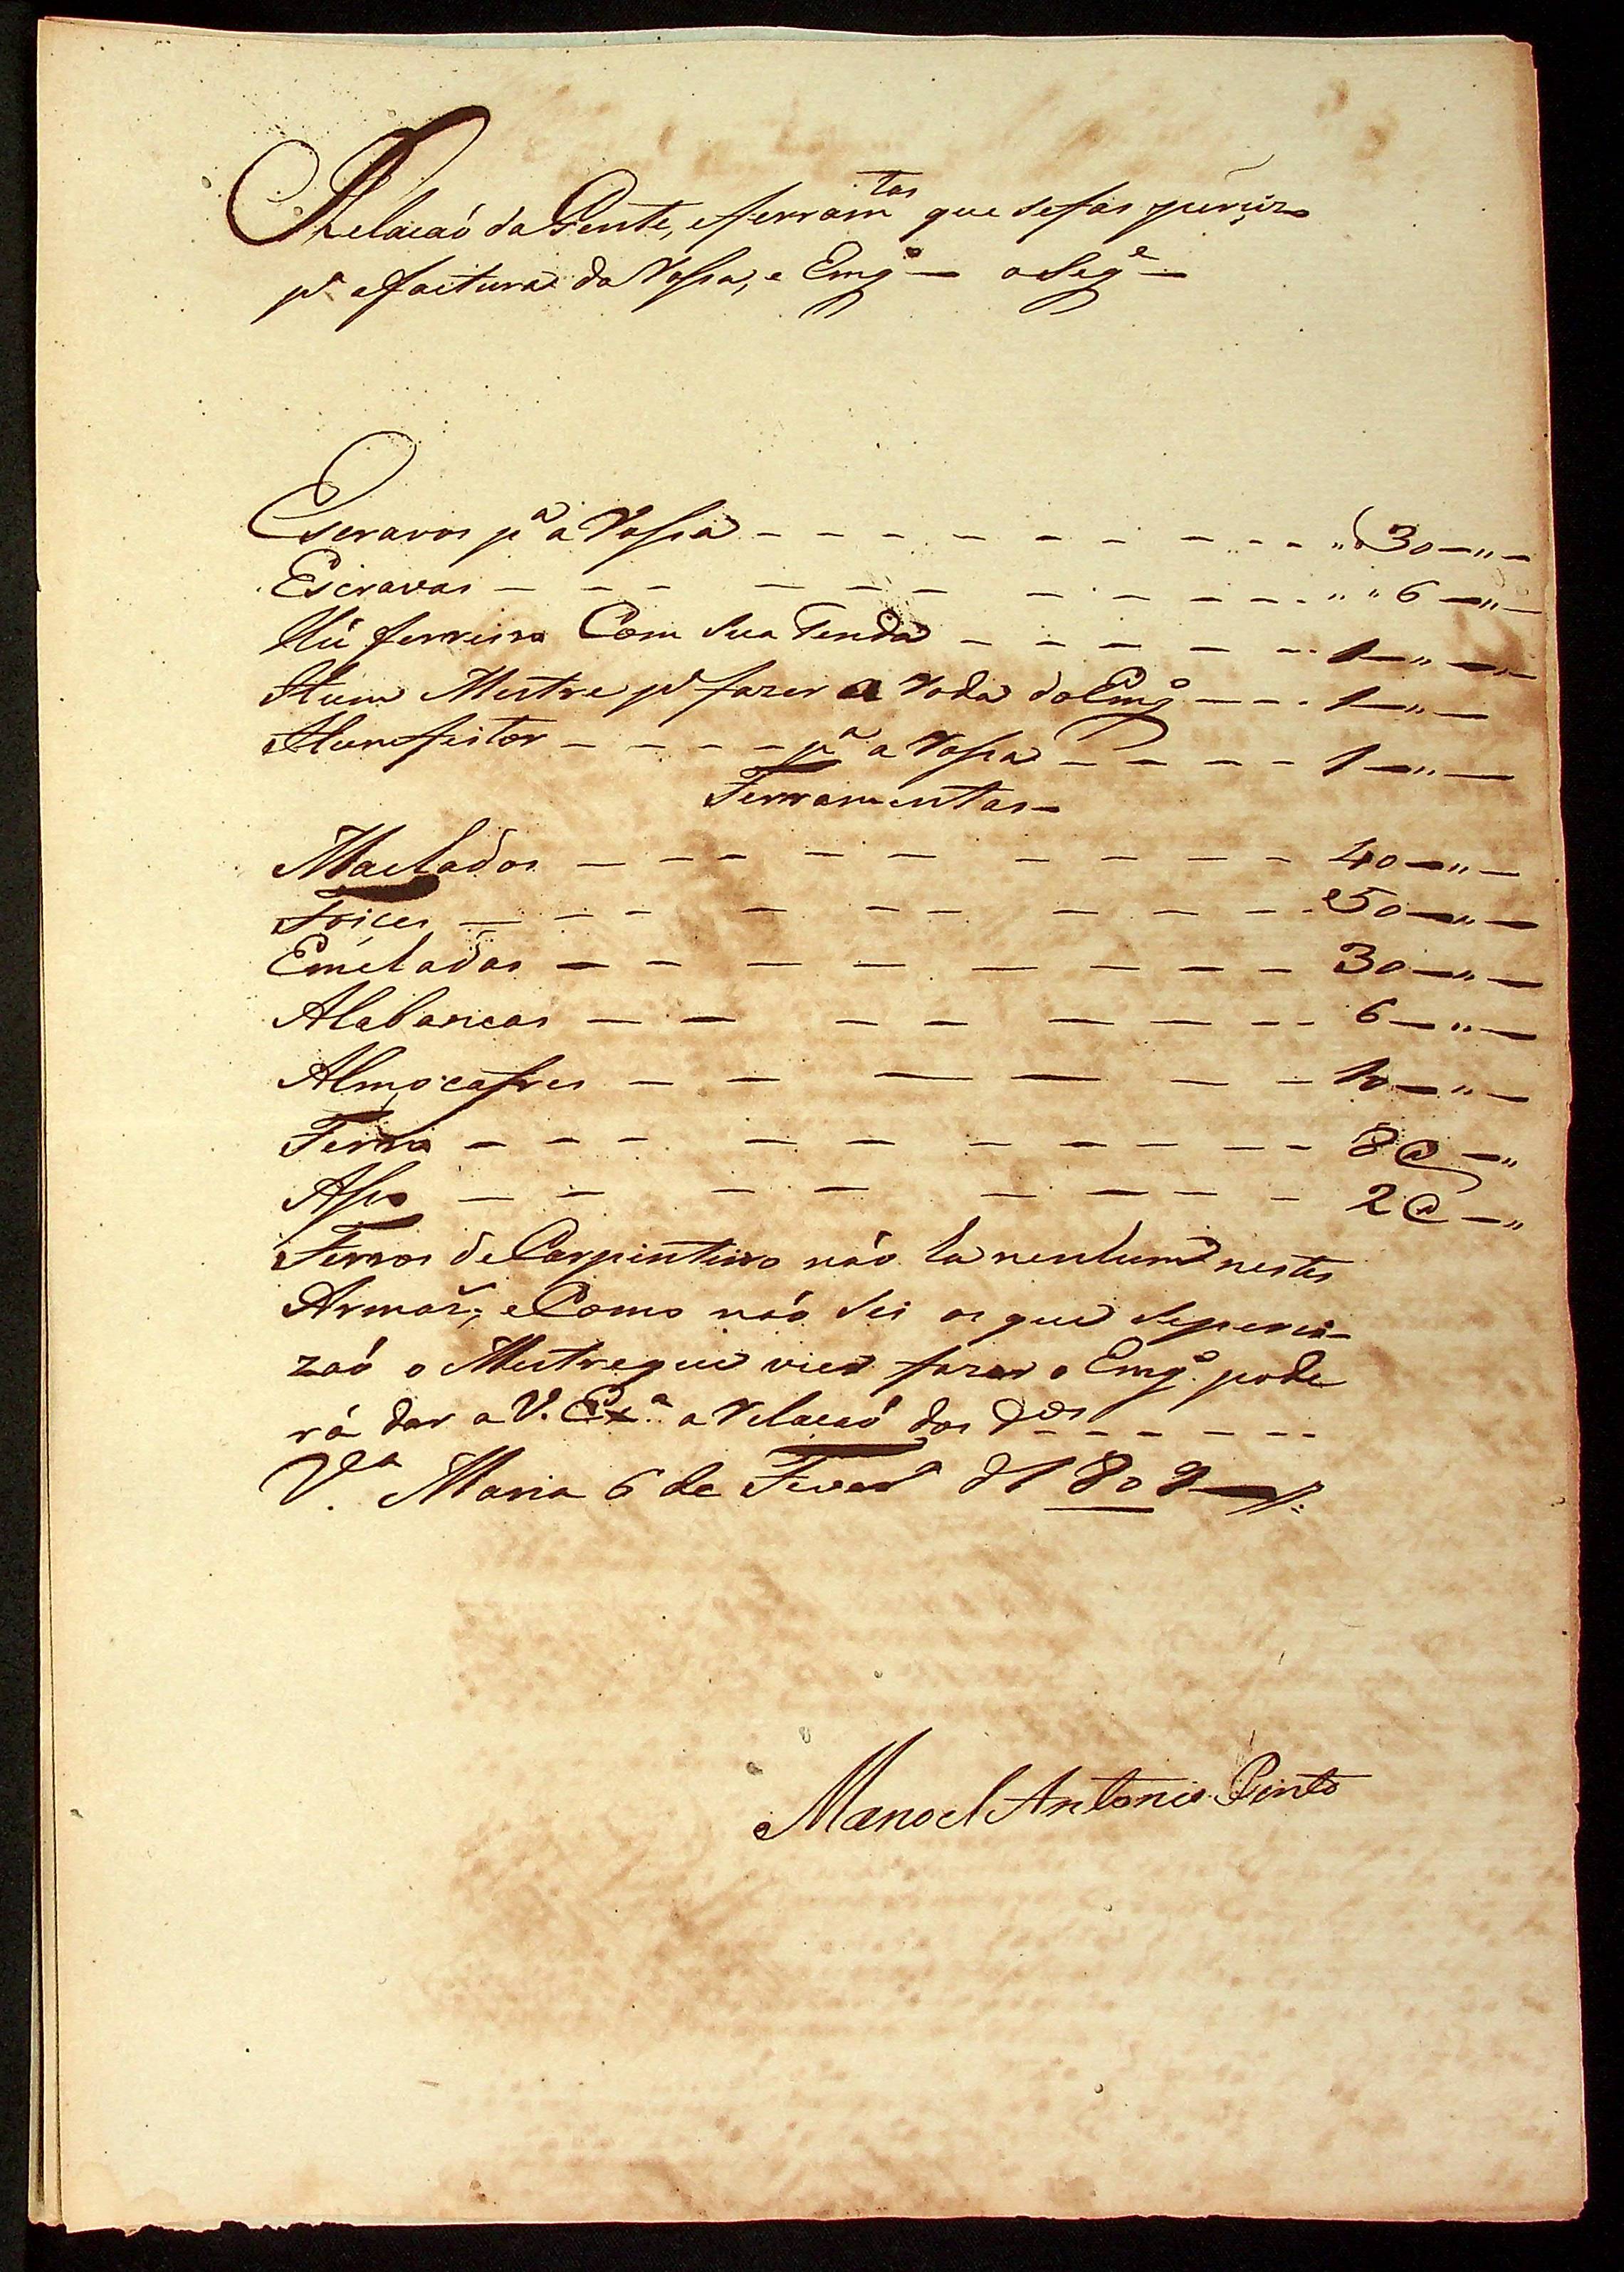 Relacaõ da Gente, e ferram.tas que se fas perçizo
p.a a factura da Rossa, e Eng.o — o Seg.e —
Escravos p.a a Rossa - - - - - - - - - - " 30 — " —
Escravas - - - - - - - - - - - " " 6 — " —
Hũ ferreiro Com sua Tenda - - - - - - 1 — " —
Hum Mestre p.a fazer a roda do Eng.o - - - 1 — " —
Hum feitor - - - - p.a a Rossa - - - - - 1 — " —
Ferramentas —
Machados - - - - - - - - - - 40 — " —
Foices - - - - - - - - - - - 50 — " —
Enchadas - - - - - - - - - 30 — " —
Alabancas - - - - - - - - - 6 — " —
Almocafres - - - - - - - 10 — " —
Ferro - - - - - - - - - - 8 @ — "
Asso - - - - - - - - - 2 @ — "
Ferros de Carpinteiro não ha nenhum nestes
Armaz.s, e Como não sei os que se perci-
zaõ o Mestre que vier fazer o Eng.o pode
rá dar a V. Ex.a a relacaõ dos d.os - - - - - -
V.a Maria 6 de Fever.o d 1809
Manoel Antonio Pinto